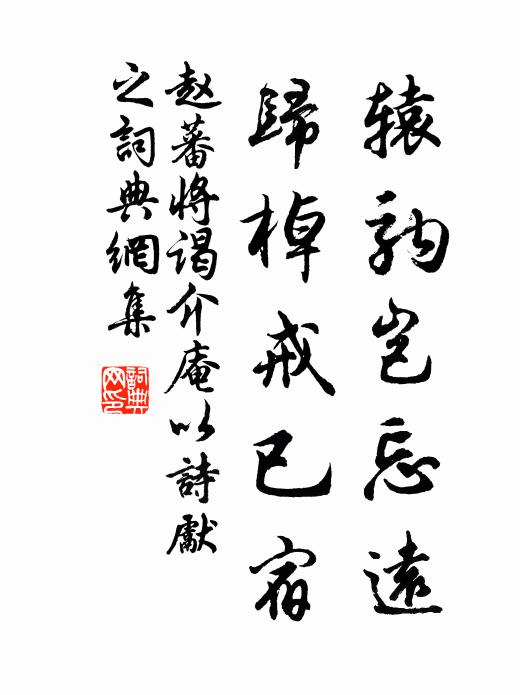 辕駒豈忘遠
歸棹戒已宿
赵蕃將谒介庵以詩獻
之詞典網集
詞典网印